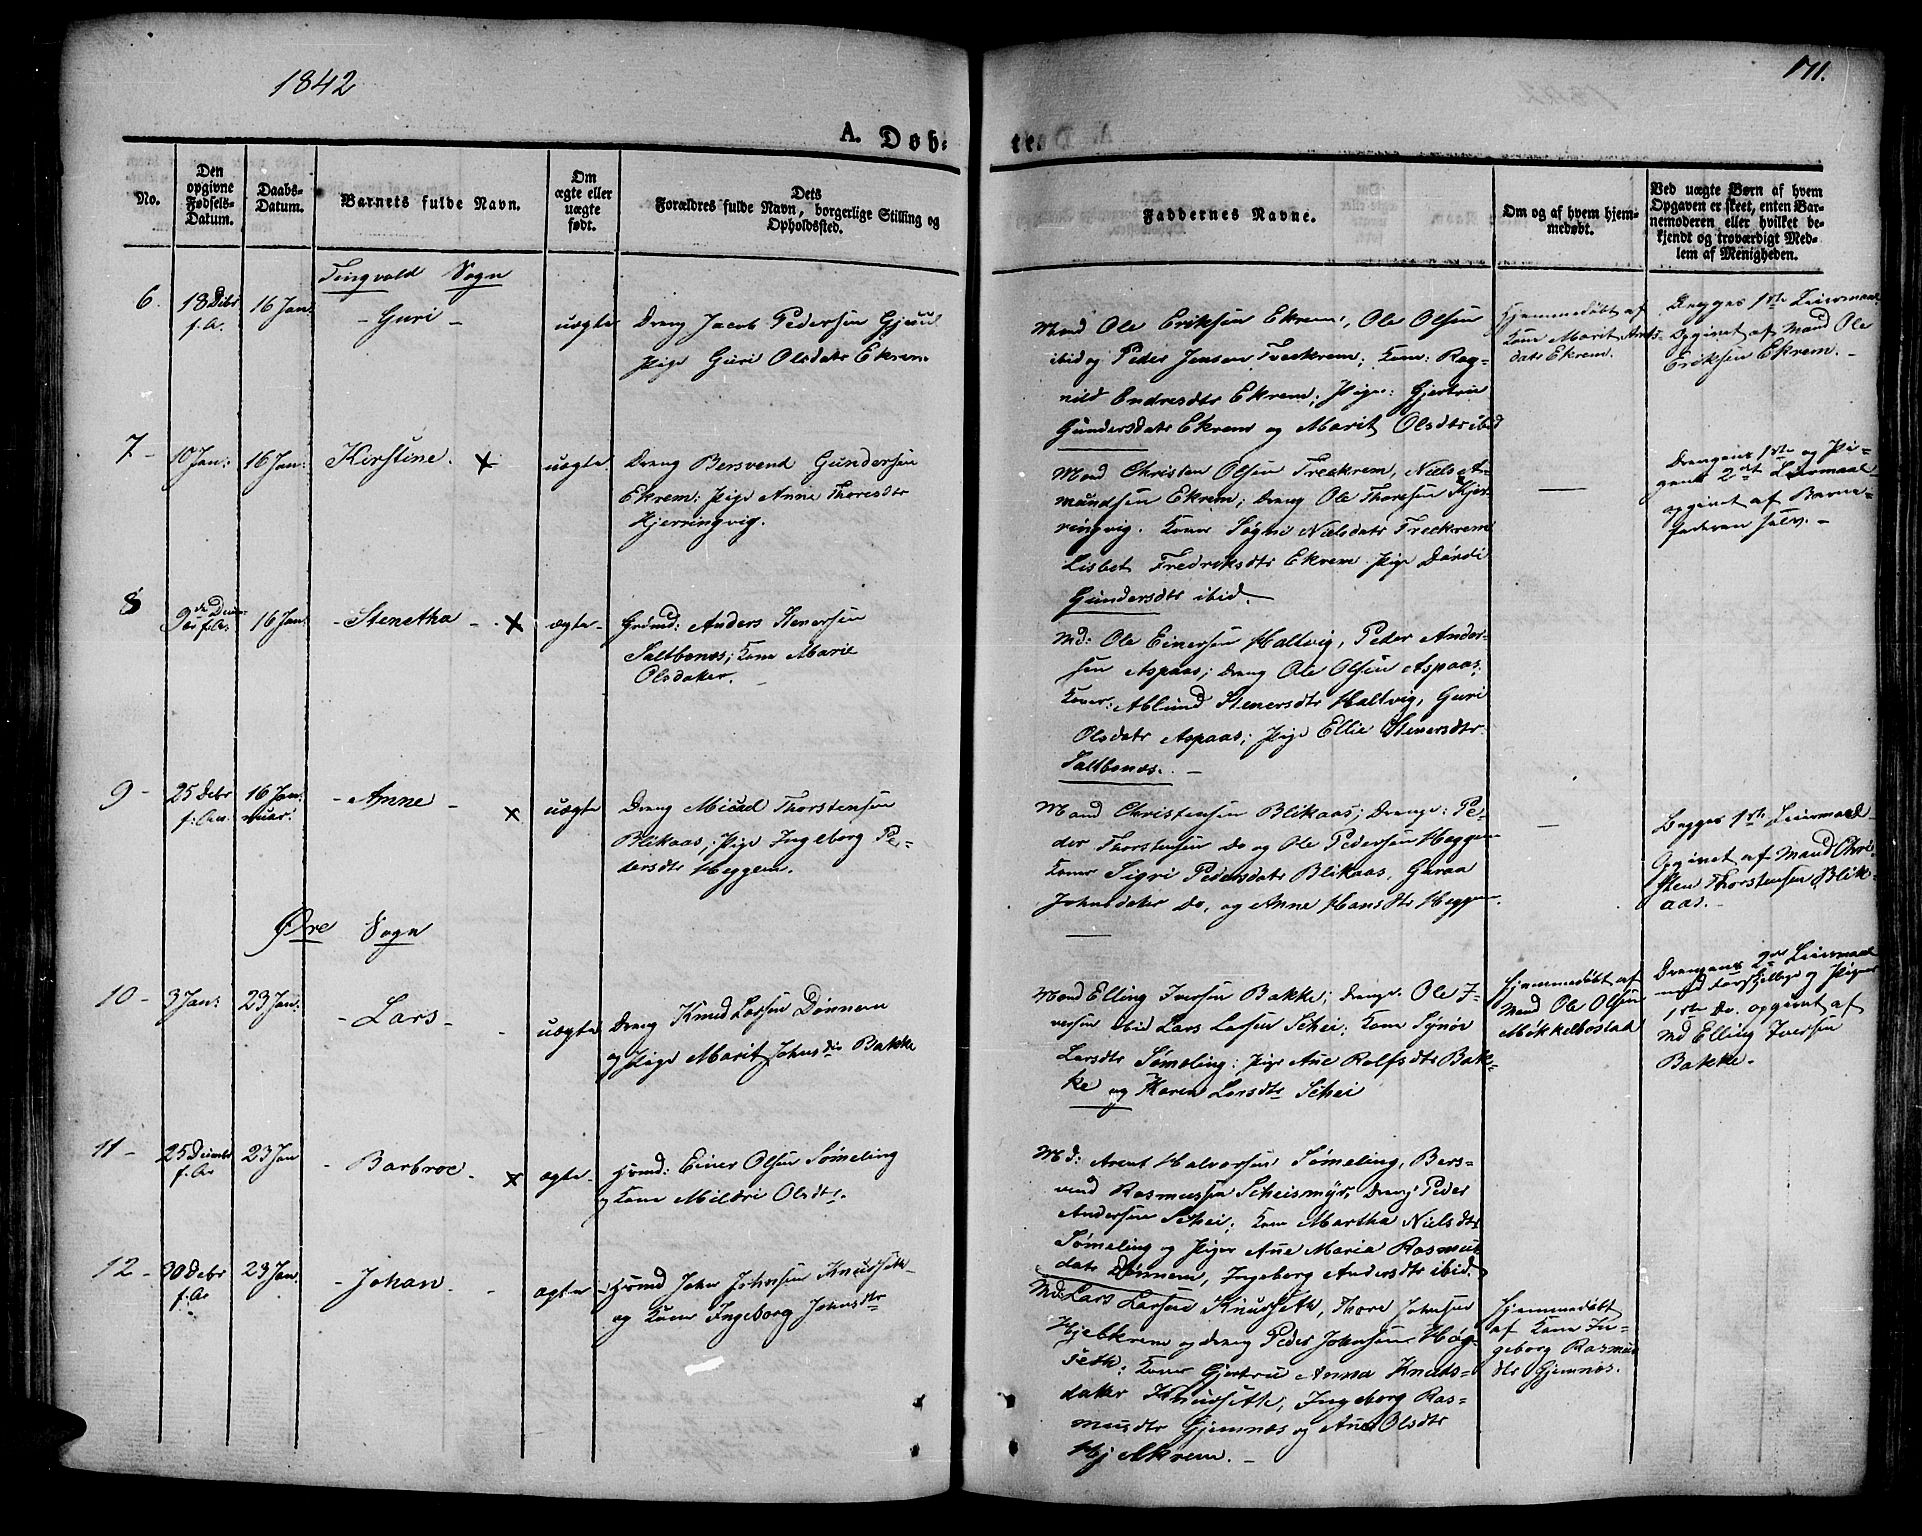 1842
171.
A. Døb-
te.
No.
Den opgivne Fødsels-Datum.
Daabs-Datum.
Barnets fulde Navn.
Om ægte eller uægte født.
Dets Forældres fulde Navn, borgerlige Stilling og Opholdssted.
Faddernes Navne.
Om og af hvem hjem-
medøbt.
Ved uægte Børn af hvem
Opgaven er skeet, enten Bar-
nemoderen eller hvilket be-
kjendt og troværdigt Med-
lem af Menigheden.
Tingvold Sogn
6.
18 Debr
f. A.
16 Jan:
- Guri -
uægte
Dreng Jacob Pedersen Gjøul
Pige Guri Olsdatr Ekrem.
Mænd Ole Eriksen Ekrem, Ole Olsen
ibid og Peder Jensen Freekrem; Kone: Rag-
nild Endresdtr Ekrem; Piger: Gjertru
Gundersdatr Ekrem og Marit Olsdtr ibid
Hjemmedøbt af
Kone Marit Arnts-
datr Ekrem.
Begges 1ste Leiermaal
Opgivet af Mand Ole
Eriksen Ekrem. -
7 -
10 Jan:
16 Jan:
Kirstine. x
uægte
Dreng Bersvend Gundersen
Ekrem; Pige Anne Thoresdtr
Kjerringvig.
Mænd Christen Olsen Freekrem, Niels A-
mundsen Ekrem; Dreng Ole Thoresen Kjer-
ringvig. Koner Søgni Nielsdatr Freekrem
Lisbet Fredriksdtr Ekrem. Pige Dordi
Gundersdtr ibid.
Drengens 1ste og Pi-
gens 2det Leiermaal
opgivet af Barne-
faderen selv. -
8
9de Decem-
br f. A.
16 Jan:
- Stenetha - x
ægte -
Grdmd: Anders Stenersen
Saltbones; Kone Marie
Olsdater. -
Md: Ole Einersen Haltvig, Peder Ander-
sen Aspaas; Dreng Ole Olsen Aspaas.
Koner: Ablund Stenersdtr Haltvig, Guri
Olsdatr Aspaas; Pige Ellie Stenersdtr
Saltbones. -
9 -
25 Debr
f: An.
16 Jan:
nuar.
- Anne - x
uægte
Dreng Micael Thorstensen
Blikaas; Pige Ingeborg Pe-
dersdtr Heggem.
Mænd Christensen Blikaas; Drenge: Pe-
der Thorstensen Do og Ole Pedersen Heggem
Koner Sigri Pedersdatr Blikaas, Guraa
Johnsdater Do, og Anne Hansdtr Heggem.
Begges 1ste Leiermaal
Opgivet af Mand Chri-
sten Thorstensen Blik-
aas. -
Øre Sogn
10 -
3 Jan:
23 Jan:
- Lars -
uægte
Dreng Knud Larsen Dønnem
og Pige Marit Johnsdtr Bakke
Mænd Elling Iversen Bakke; Drenge: Ole I-
versen ibid Lars Larsen Schei; Kone Synøv
Larsdtr Sømeling; Pige Ane Rolfsdtr Bak-
ke og Karen Larsdtr Schei
Hjemmedøbt af
Mand Ole Olsen
Møkkelbostad
Drengens 2det Leiermaal
med forskjellige og Pigens
1ste Do. opgivet af
Md Elling Iversen
Bakke. -
11 -
25 Decembr
f. Ar
23 Jan
- Barbroe - x
ægte -
Huusmd: Einer Olsen Sømeling
og Kone Mildri Olsdtr.
Md: Arent Halvorsen Sømeling, Bers-
vend Rasmussen Scheismyr; Dreng Peder
Andersen Schei; Kone Martha Nielsdtr
Sømeling og Piger Ane Maria Rasmus-
datr Dønnem, Ingeborg Andersdtr ibid.
12 -
30 Debr
f. Ar
23 Jan.
- Johan. -
ægte -
Huusmd John Johnsen Knudseth
og Kone Ingeborg Johnsdtr
Md: Lars Larsen Knudseth, Thore Johnsen
Hjelkrem og Dreng Peder Johnsen Høg-
seth; Koner Gjertru Anna Knuds-
dater Knudseth, Ingeborg Ras-
musdtr Gjemnæs og Ane Olsdtr
Hjelkrem. -
Hjemmedøbt
af Kone In-
geborg Rasmus
dtr Gjemnæs.